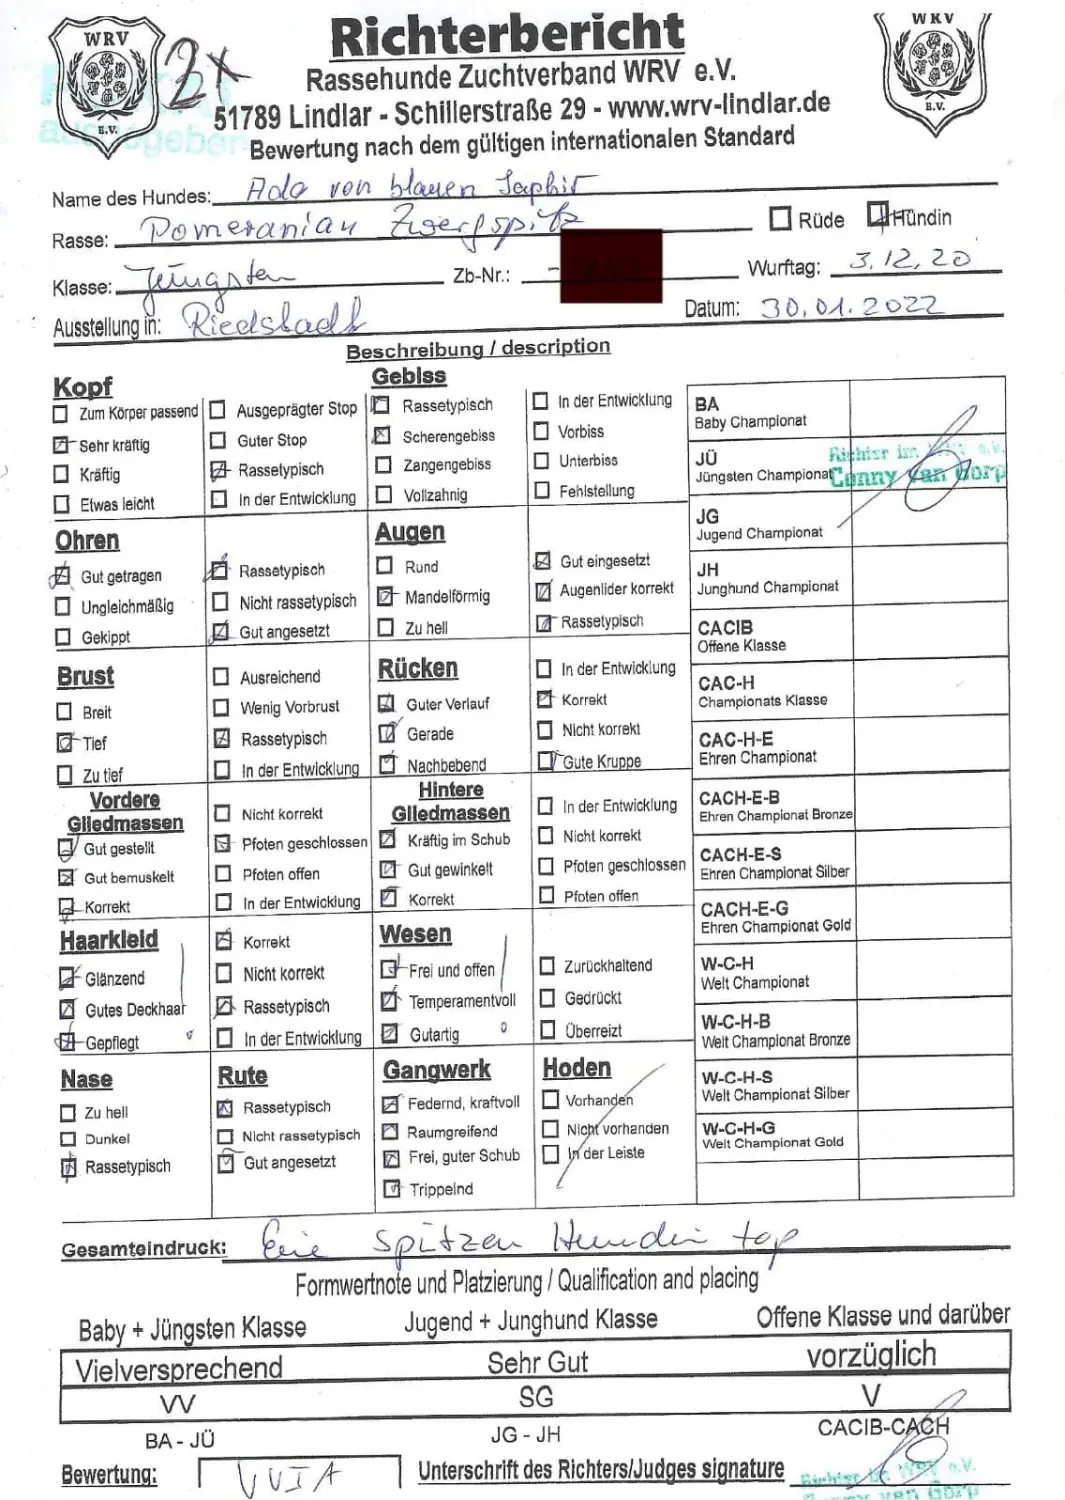 WRV
E.V.
2x
Richterbericht
WRV
E.V.
Rassehunde Zuchtverband WRV e.V.
51789 Lindlar - Schillerstraße 29 - www.wrv-lindlar.de
Bewertung nach dem gültigen internationalen Standard
Name des Hundes: Ada von blauen Saphir
Rasse: Pomeranian Zwergspitz Rüde Hündin
Klasse: Jüngsten Zb-Nr.: - Wurftag: 3.12.20
Ausstellung in: Riedstadt Datum: 30.01.2022
Beschreibung / description
Kopf
Zum Körper passend
Sehr kräftig
Kräftig
Etwas leicht
Ausgeprägter Stop
Guter Stop
Rassetypisch
In der Entwicklung
Gebiss
Rassetypisch
Scherengebiss
Zangengebiss
Vollzahnig
In der Entwicklung
Vorbiss
Unterbiss
Fehlstellung
Ohren
Gut getragen
Ungleichmäßig
Gekippt
Rassetypisch
Nicht rassetypisch
Gut angesetzt
Augen
Rund
Mandelförmig
Zu hell
Gut eingesetzt
Augenlider korrekt
Rassetypisch
Brust
Breit
Tief
Zu tief
Ausreichend
Wenig Vorbrust
Rassetypisch
In der Entwicklung
Rücken
Guter Verlauf
Gerade
Nachbebend
In der Entwicklung
Korrekt
Nicht korrekt
Gute Kruppe
Vordere
Gliedmassen
Gut gestellt
Gut bemuskelt
Korrekt
Nicht korrekt
Pfoten geschlossen
Pfoten offen
In der Entwicklung
Hintere
Gliedmassen
Kräftig im Schub
Gut gewinkelt
Korrekt
In der Entwicklung
Nicht korrekt
Pfoten geschlossen
Pfoten offen
Haarkleid
Glänzend
Gutes Deckhaar
Gepflegt
Korrekt
Nicht korrekt
Rassetypisch
In der Entwicklung
Wesen
Frei und offen
Temperamentvoll
Gutartig
Zurückhaltend
Gedrückt
Überreizt
Nase
Zu hell
Dunkel
Rassetypisch
Rute
Rassetypisch
Nicht rassetypisch
Gut angesetzt
Gangwerk
Federnd, kraftvoll
Raumgreifend
Frei, guter Schub
Trippelnd
Hoden
Vorhanden
Nicht vorhanden
In der Leiste
BA
Baby Championat
JÜ
Jüngsten Championat
Richter im WRV e.V.
Conny van Gorp
JG
Jugend Championat
JH
Junghund Championat
CACIB
Offene Klasse
CAC-H
Championats Klasse
CAC-H-E
Ehren Championat
CACH-E-B
Ehren Championat Bronze
CACH-E-S
Ehren Championat Silber
CACH-E-G
Ehren Championat Gold
W-C-H
Welt Championat
W-C-H-B
Welt Championat Bronze
W-C-H-S
Welt Championat Silber
W-C-H-G
Welt Championat Gold
Gesamteindruck: Eine Spitzen Hündin top
Formwertnote und Platzierung / Qualification and placing
Baby + Jüngsten Klasse Jugend + Junghund Klasse Offene Klasse und darüber
Vielversprechend Sehr Gut vorzüglich
VV SG V
BA - JÜ JG - JH CACIB-CACH
Bewertung: VV1A Unterschrift des Richters/Judges signature
Richter im WRV e.V.
Conny van Gorp